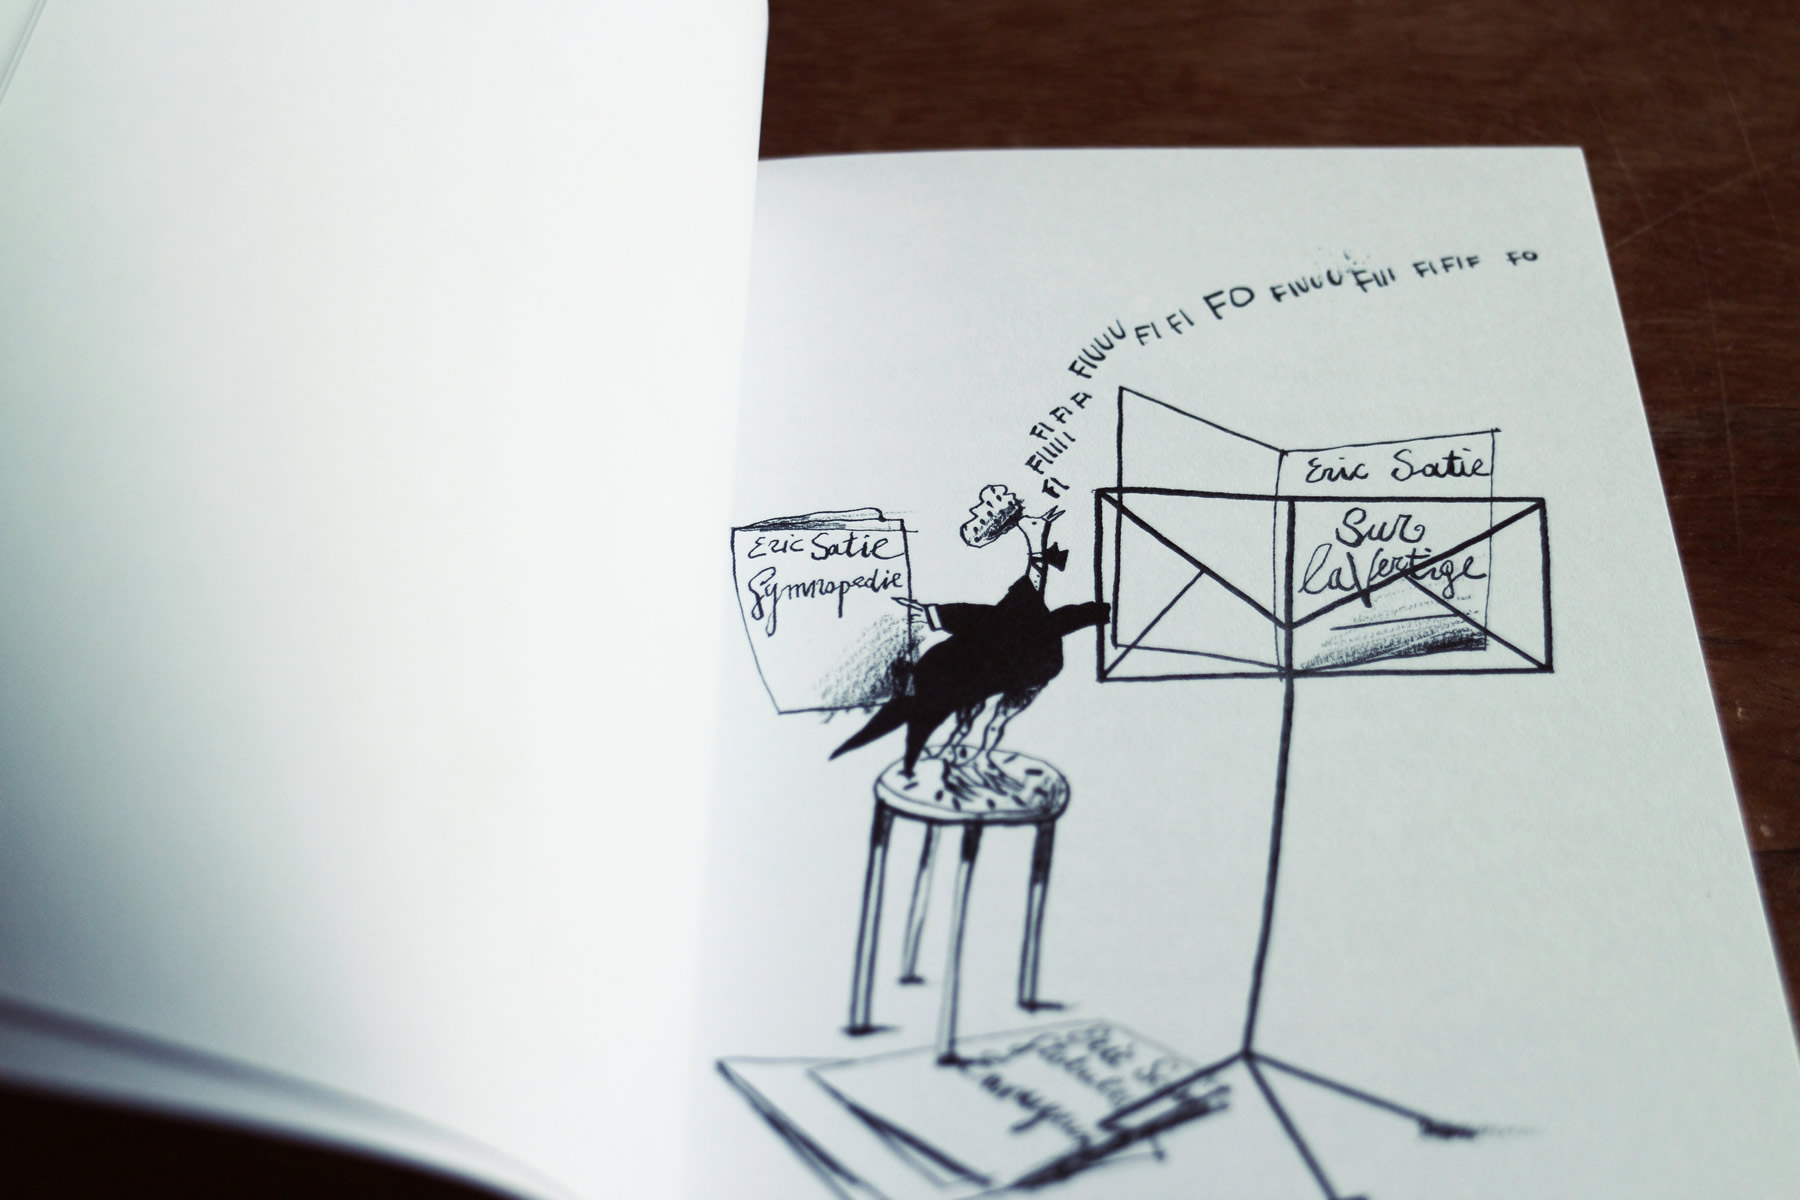 FI FIIIII FI FI FI FIUUU FI FI FO FIUUU FIII FIFIF FO
Eric Satie
Sur
la Vertige
Eric Satie
Gymnopedie
Eric